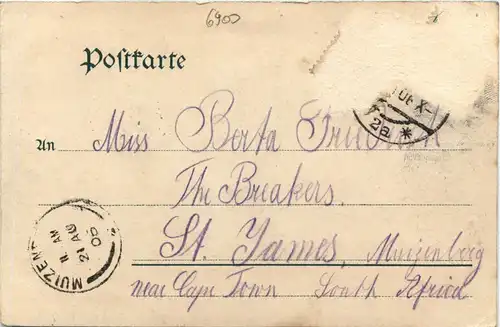 6900
Postkarte
An Miss Berta
The Breakers.
St. James, Muizenberg
near Cape Town South Africa
MUIZEN
11 AM
21 AU
2a *